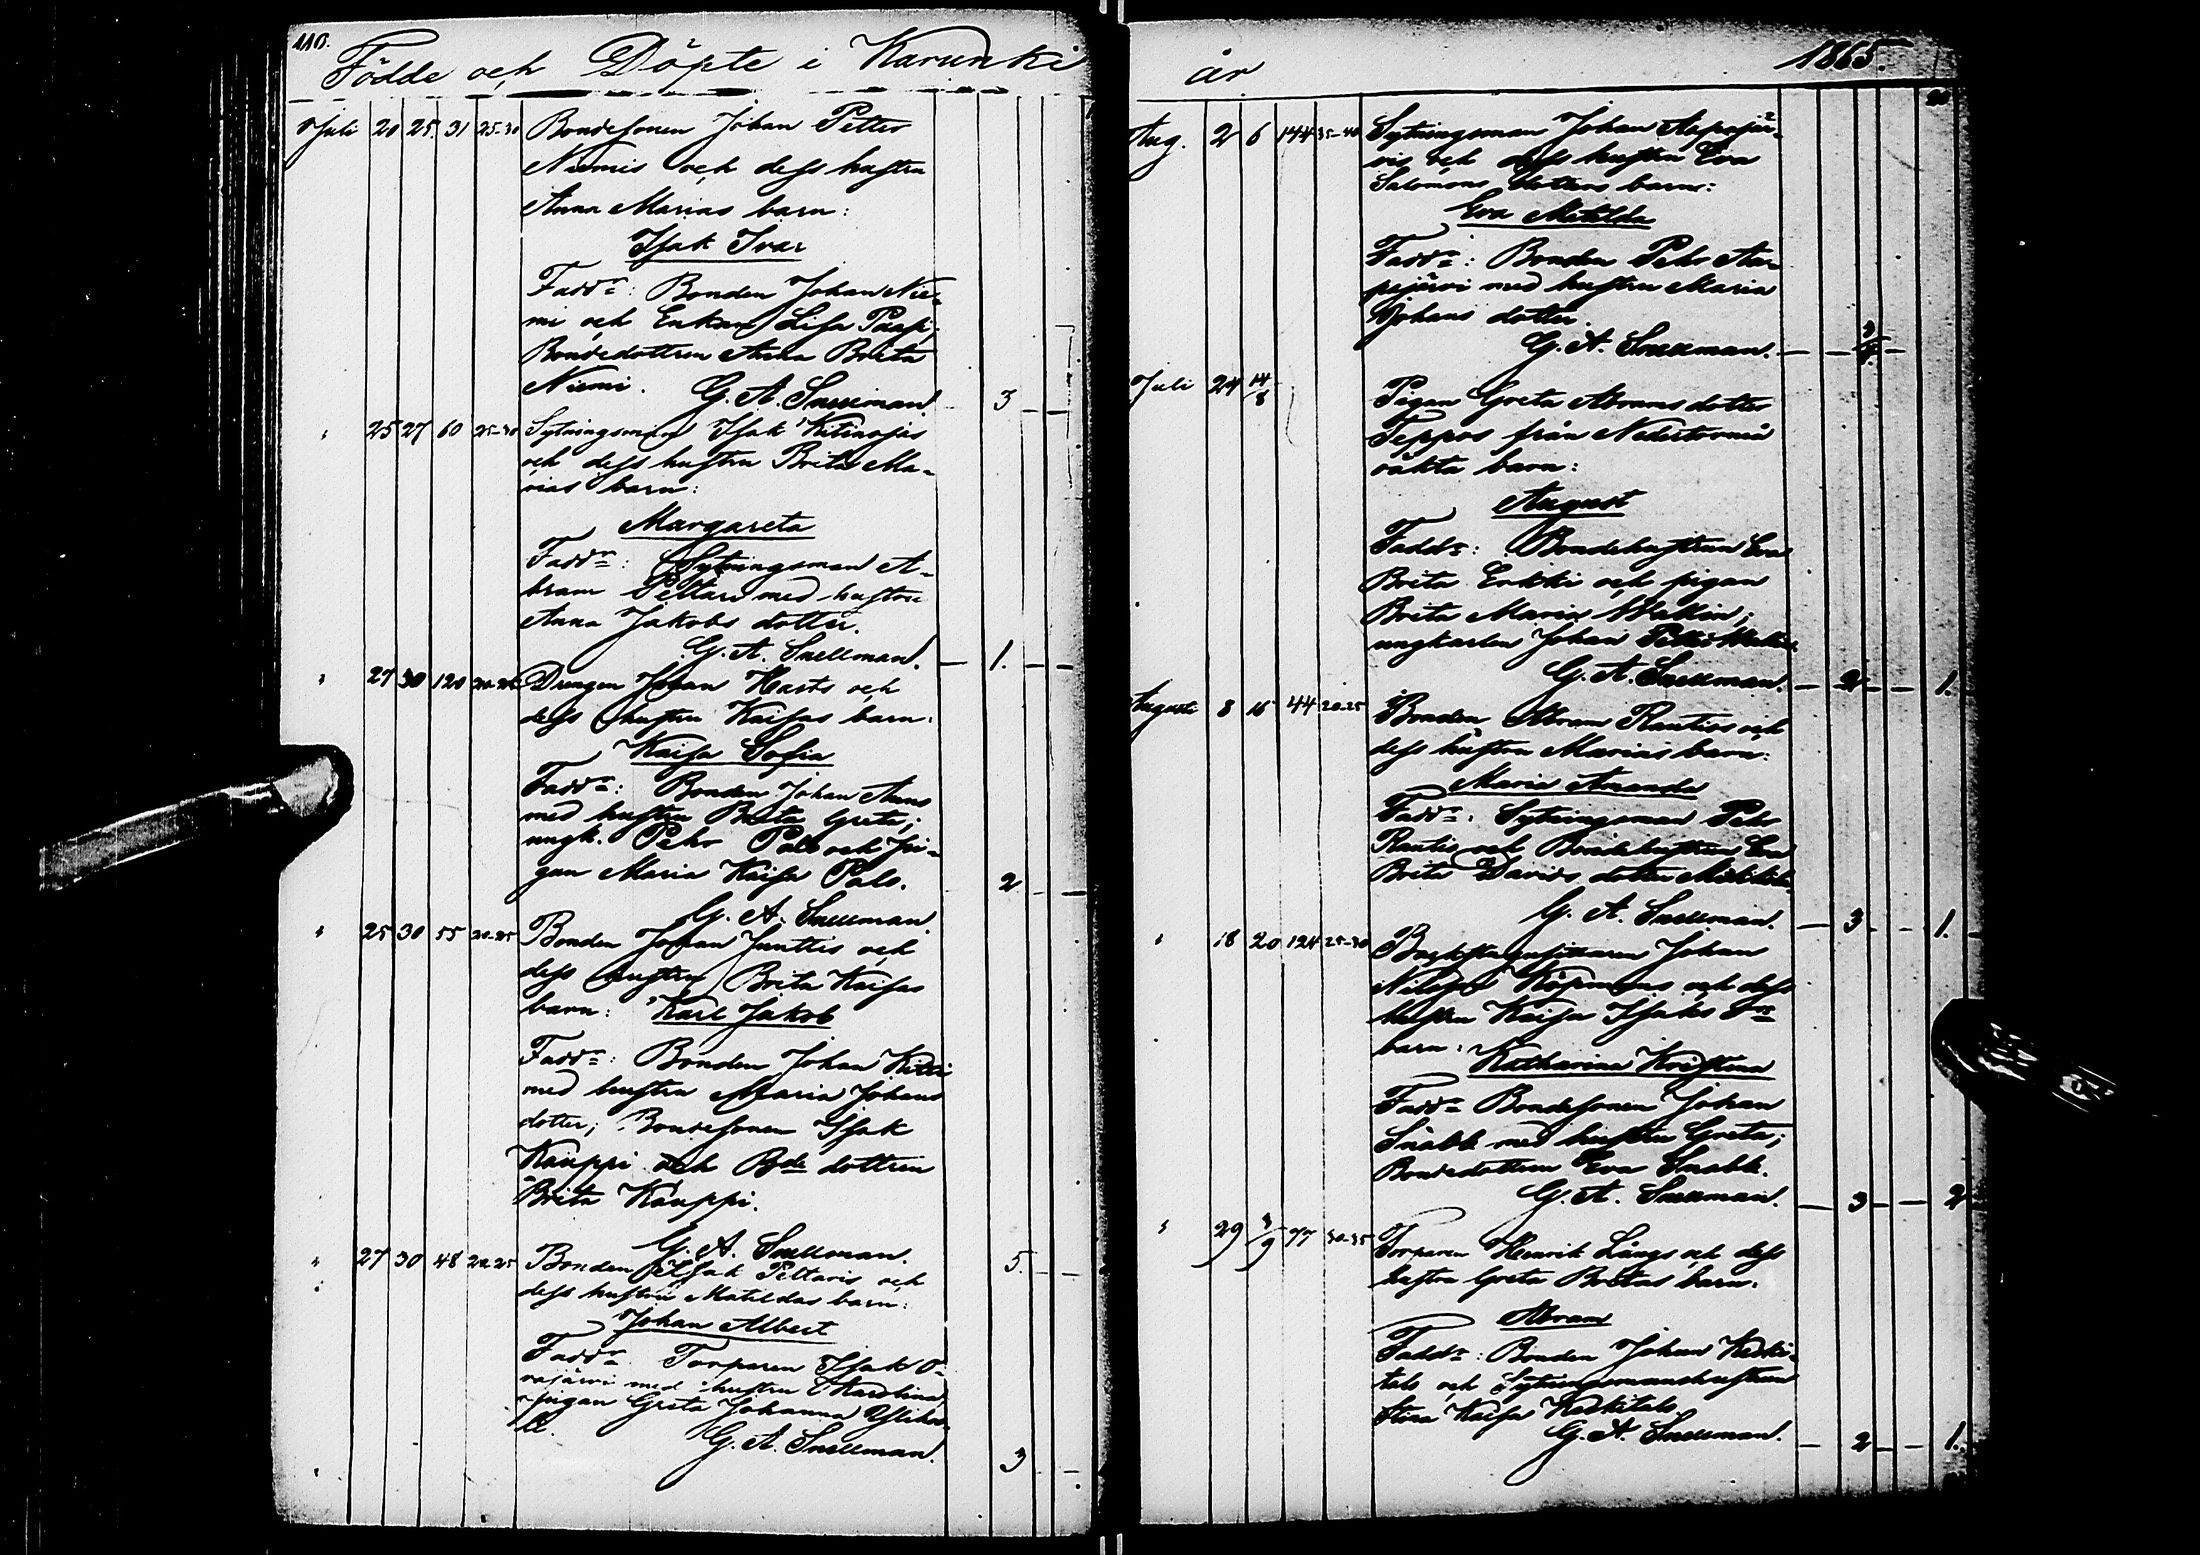 110.
Födde och Döpte i Karunki
Juli 20 25. 31 25-30 Bondesonen Johan Petter
Niemis och dess hustru
Anna Marias barn:
Isak Ivar
Faddr: Bonden Johan Nie-
mi och Enkan Lisa Paapi;
Bondedottren Anna Brita
Niemi. G. A. Snellman. 3
25 27 60 25-30 Sytningsman Isak Kitinojas
och dess hustru Brita Ma-
rias barn:
Margareta
Faddr: Sytningsman A-
bram Peltari med hustru
Anna Jakobs dotter.
G. A. Snellman. 1.
27 30 120 Drengen Johan Hasts och
dess hustru Kaisas barn:
Kaisa Sofia
Faddr: Bonden Johan Anns
med hustru Brita Greta;
ungk. Pehr Palo och pi-
gan Maria Kaisa Palo. 2
G. A. Snellman.
25 30 55 20-25 Bonden Johan Junttis och
dess hustru Brita Kaisas
barn: Karl Jakob
Faddr: Bonden Johan
med hustru Maria Johans
dotter; Bondesonen Isak
Kauppi och Bde dottren
Brita Kauppi.
G. A. Snellman. 5.
27 30 48 20-25 Bonden Isak Peltaris och
dess hustru Matildas barn:
Johan Albert
Faddr Torparen Isak O-
rajärvi med hustru Karolina,
pigan Greta Johanna
G. A. Snellman. 3
år 1865.
Aug. 2 6 144 35-40 Sytningsman Johan Aapajär-
vis och dess hustru Eva
Salomons dotters barn:
Eva Matilda
Faddr: Bonden Pehr Aa-
pajärvi med hustru Maria
Johans dotter
G. A. Snellman.
Juli 24 14/8 Pigan Greta Abrams dotter
Teppos från Nedertorneå
oäkta barn:
August
Faddr: Bondehustrun Eva
Brita Erkki och pigan
Brita Maria Wallin;
ungkarlen Johan Petter Wallin.
G. A. Snellman. 2 1.
Augusti 8 15 44 20-25 Bonden Abram Rautios och
dess hustru Marias barn:
Maria Amanda
Faddr: Sytningsman Pehr
Rautio och Bondehustrun Eva
Brita Davids dotter
G. A. Snellman. 3 1.
18 20 124 25-30 Backstugusittaren Johan
Nilsson Köpmans och dess
hustru Kaisa Isaks Dr
barn:
Katharina Kristina
Faddr Bondesonen Johan
Snabb med hustru Greta;
Bondedottren Eva Snabb.
G. A. Snellman. 3 2
29 3/9 77 30-35 Torparen Henrik Långs och dess
hustru Greta Britas barn:
Abram
Faddr: Bonden Johan Keski-
talo och Sytningsmanshustrun
Stina Kaisa Keskitalo
G. A. Snellman. 2 1.